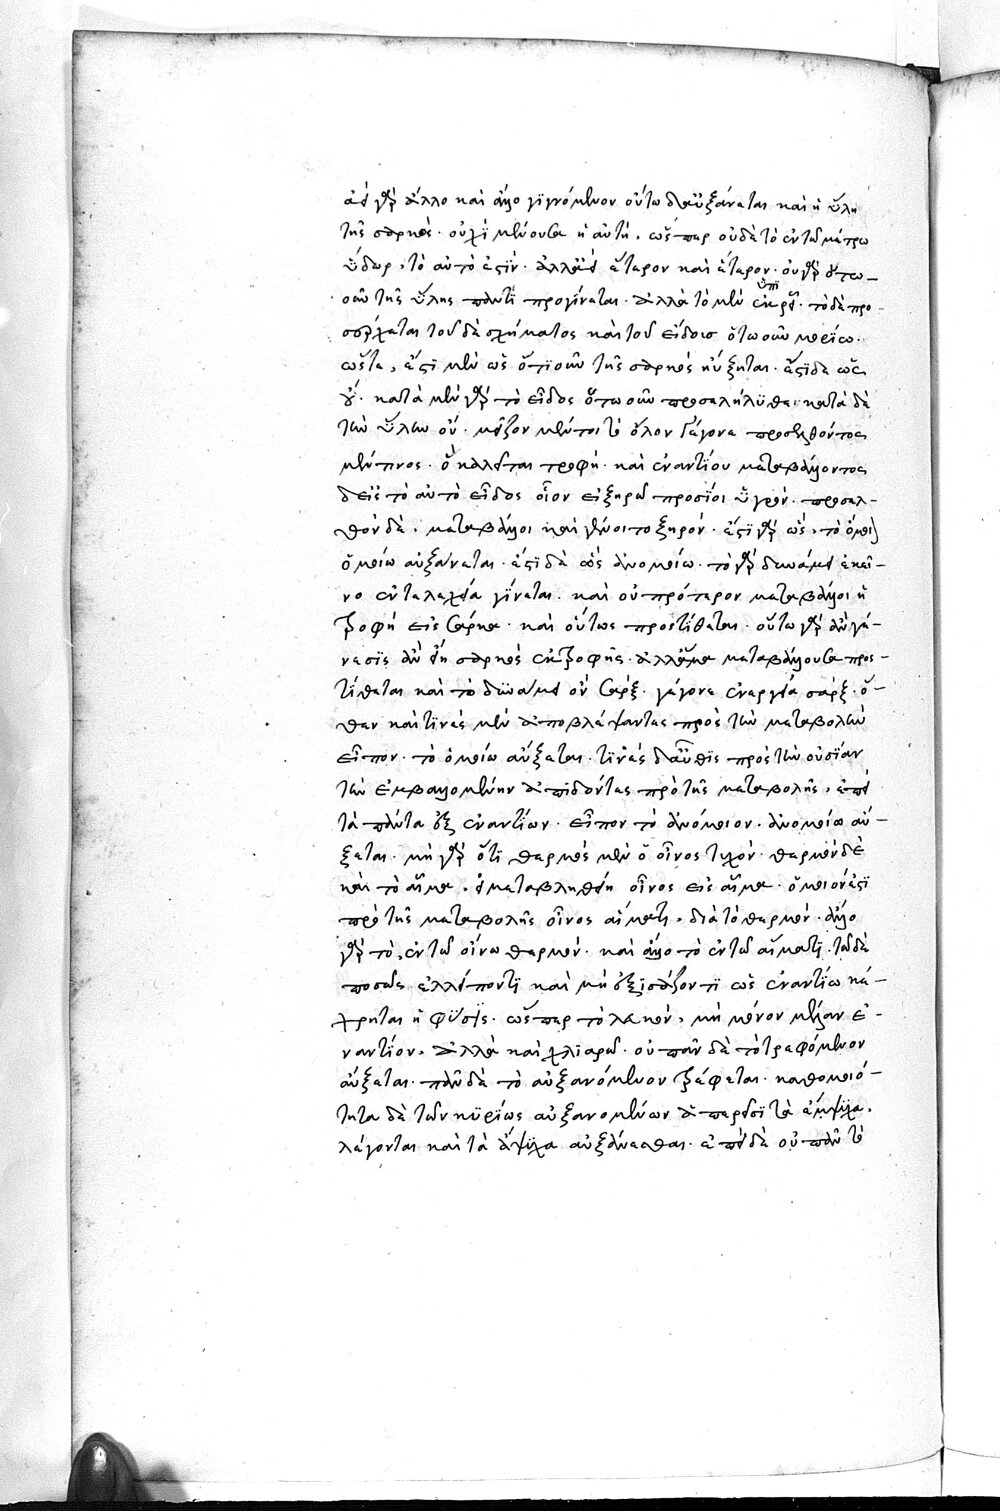 ἀεὶ γὰρ ἄλλο καὶ ἄλλο γϊγνόμενον οὕτω δ' αὐξάνεται καὶ ἡ ὕλη
τῆς σαρκός· οὐχὶ μένουσα ἡ αὐτή, ὥσπερ οὐδὲ τὸ ἐν τῶ μέτρω
ὕδωρ, τὸ αὐτὸ ἐστίν· ἀλλ' ἀεὶ ἕτερον καὶ ἕτερον· οὐ γὰρ ὁτω-
οῦν τῆς ὕλης παντὶ προγίνεται· ἀλλὰ τὸ μὲν ὑπεκρεῖ· τὸ δὲ προ-
σέρχεται τοῦ δὲ σχήματος καὶ τοῦ εἴδους ὁτωοῦν μορίω·
ὥστε, ἔστι μὲν ὡς ὁτϊοῦν τῆς σαρκὸς ηὔξηται· ἔστϊ δὲ ὡς
οὔ· κατὰ μὲν γὰρ τὸ εἶδος ὅτωοῦν προσελήλυθε· κατὰ δὲ
τὴν ὕλην οὔ· μεῖζον μέντοι τὸ ὅλον γέγονε προσελθόντος
μέν τινος· ὃ καλεῖται τροφή· καὶ ἐναντίου μεταβάλλοντος
δὲ εἰς τὸ αὐτὸ εἶδος οἷον εἰ ξηρῶ προσϊοι ὑγρόν· προσελ-
θὸν δὲ, μεταβάλλοι καὶ γένοιτο ξηρόν· ἔστϊ γὰρ ὡς, τὸ ὅμοιον
ὁμοίω αὐξάνεται· ἔστϊ δὲ ὡς ἀνομοίω· τὸ γὰρ δυνάμει ἐκεῖ-
νο ἐντελεχεία γίνεται· καὶ οὐ πρότερον μεταβάλλοι ἡ
τροφὴ εἰς σάρκα· καὶ οὕτως προστίθεται· οὕτω γὰρ ἂν γέ-
νεσϊς ἂν εἴη σαρκὸς ἐκ τροφῆς· ἀλλ' ἅμα μεταβάλλουσα προσ-
τίθεται καὶ τὸ δυνάμει ὂν σάρξ· γέγονε ἐνεργεία σάρξ· ὅ-
θεν καὶ τινὲς μὲν ἀποβλέψαντες πρὸς τὴν μεταβολὴν
εἶπον· τὸ ὁμοίω αὔξεται· τϊνὲς δ' αὖθϊς πρὸς τὴν οὐσίαν
τὴν ἐμβαλλομένην ἀπϊδόντες πρὸ τῆς μεταβολῆς, ἐπεὶ
τὰ πάντα ἐξ ἐναντίων· εἶπον τὸ ἀνόμοιον· ἀνομοίω αὔ-
ξεται· μὴ γὰρ ὅτϊ θερμὸς μὲν ὁ οἶνος τυχόν· θερμὸν δὲ
καὶ τὸ αἷμα, εἰ μεταβληθείη οἶνος εἰς αἷμα· ὅμοιόν ἐστϊ
πρὸ τῆς μεταβολῆς οἶνος αἵματι, διὰ τὸ θερμόν· ἄλλο
γὰρ τὸ, ἐν τῶ οἴνω θερμόν· καὶ ἄλλο τὸ ἐν τῶ αἵματϊ· τῶ δὲ
ποσῶς ἐλλείποντϊ καὶ μὴ ἐξϊσάζοντϊ ὡς ἐναντίω κέ-
χρηται ἡ φύσϊς· ὥσπερ τὸ λευκόν, μὴ μόνον μέλαν ἐ-
ναντίον, ἀλλὰ καὶ χλϊαρῶ· οὐ πᾶν δὲ τὸ τρεφόμενον
αὔξεται· πᾶν δὲ τὸ αὐξανόμενον τρέφεται· καθ' ὁμοιό-
τητα δὲ τῶν κϋρίως αὐξανομένων ἅπερ ἐστϊ τὰ ἔμψϋχα,
λέγονται καὶ τὰ ἄψϋχα αὐξάνεσθαι· ἐπεὶ δὲ οὐ πᾶν τὸ